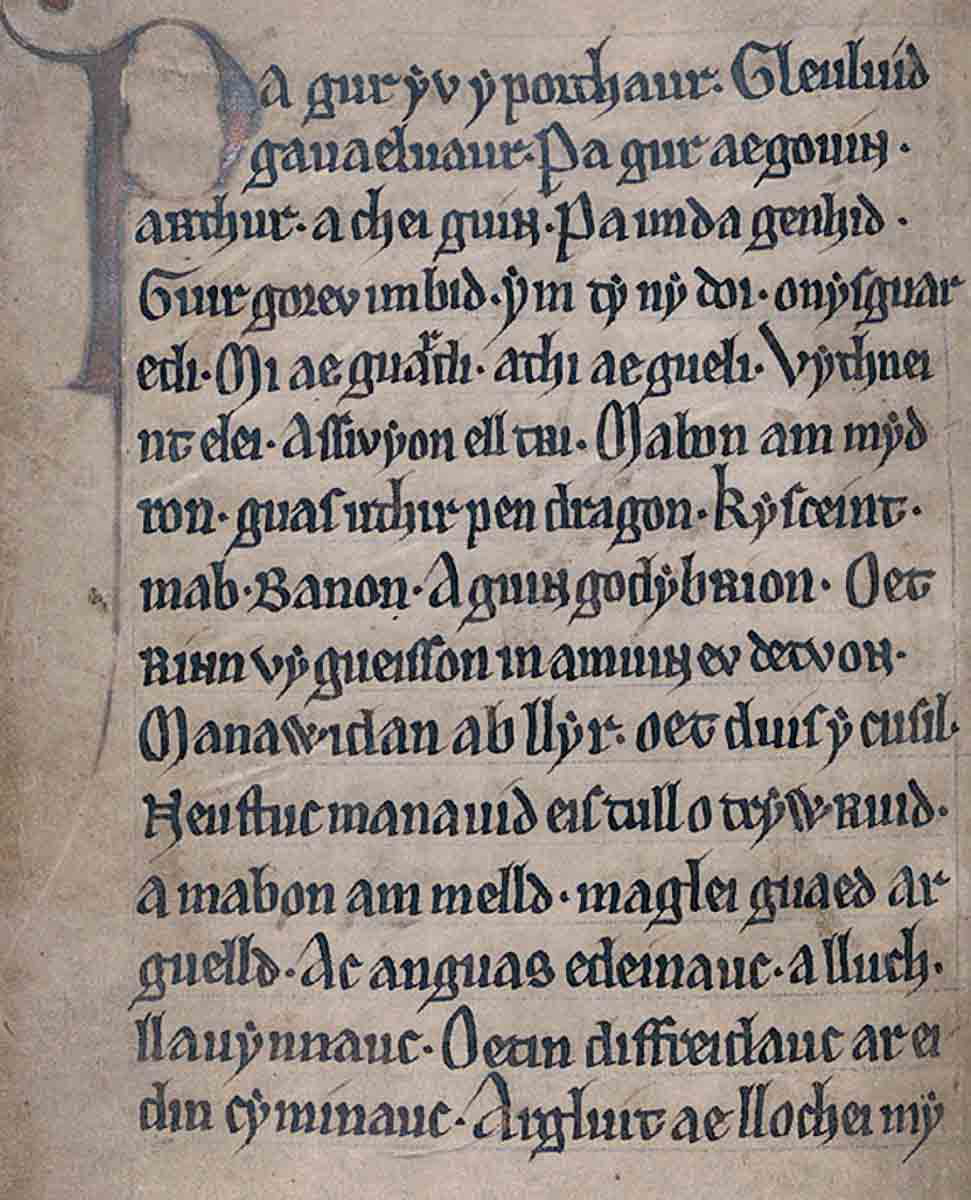 Pa gur ẏv ẏ porthaur. Gleuluid
gauaeluaur. Pa gur ae gouin.
arthur. a chei guin. Pa imda genhid.
Guir gorev im bid. ẏm tẏ nẏ doi. onẏ sguar
edi. Mi ae guardi. athi ae gueli. Vẏthnei
nt elei. Assivẏon ell tri. Mabon am mẏd
ron. guas uthir pen dragon. kẏsceint.
mab. Banon. A guin godẏbrion. Oet
rinn vẏ gueisson in amuin ev detvon.
Manawidan ab llẏr. oet duis ẏ cusil.
Neustuc manauid eis tull o trẏwruid.
a mabon am melld. maglei guaed ar
guelld. Ac anguas edeinauc. a lluch.
llauẏnnauc. Oetin diffreidauc ar ei
din cẏminauc. Argluit ae llochei mẏ